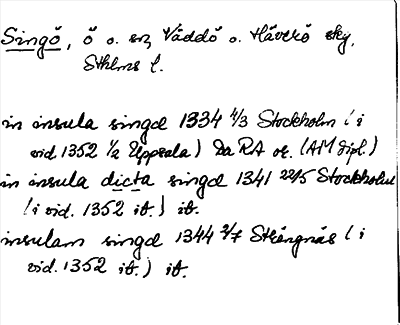 Singö, ö o. sn, Väddö o. Häverö skg,
Sthlms l.
in insula singø 1334 4/3 Stockholm (i
vid 1352 1/2 Uppsala) Da RA or. (AM Dipl.)
in insula dicta singø 1341 22/5 Stockholm
(i vid. 1352 ib.) ib.
insulam singø 1344 2/7 Strängnäs (i
vid. 1352 ib.) ib.